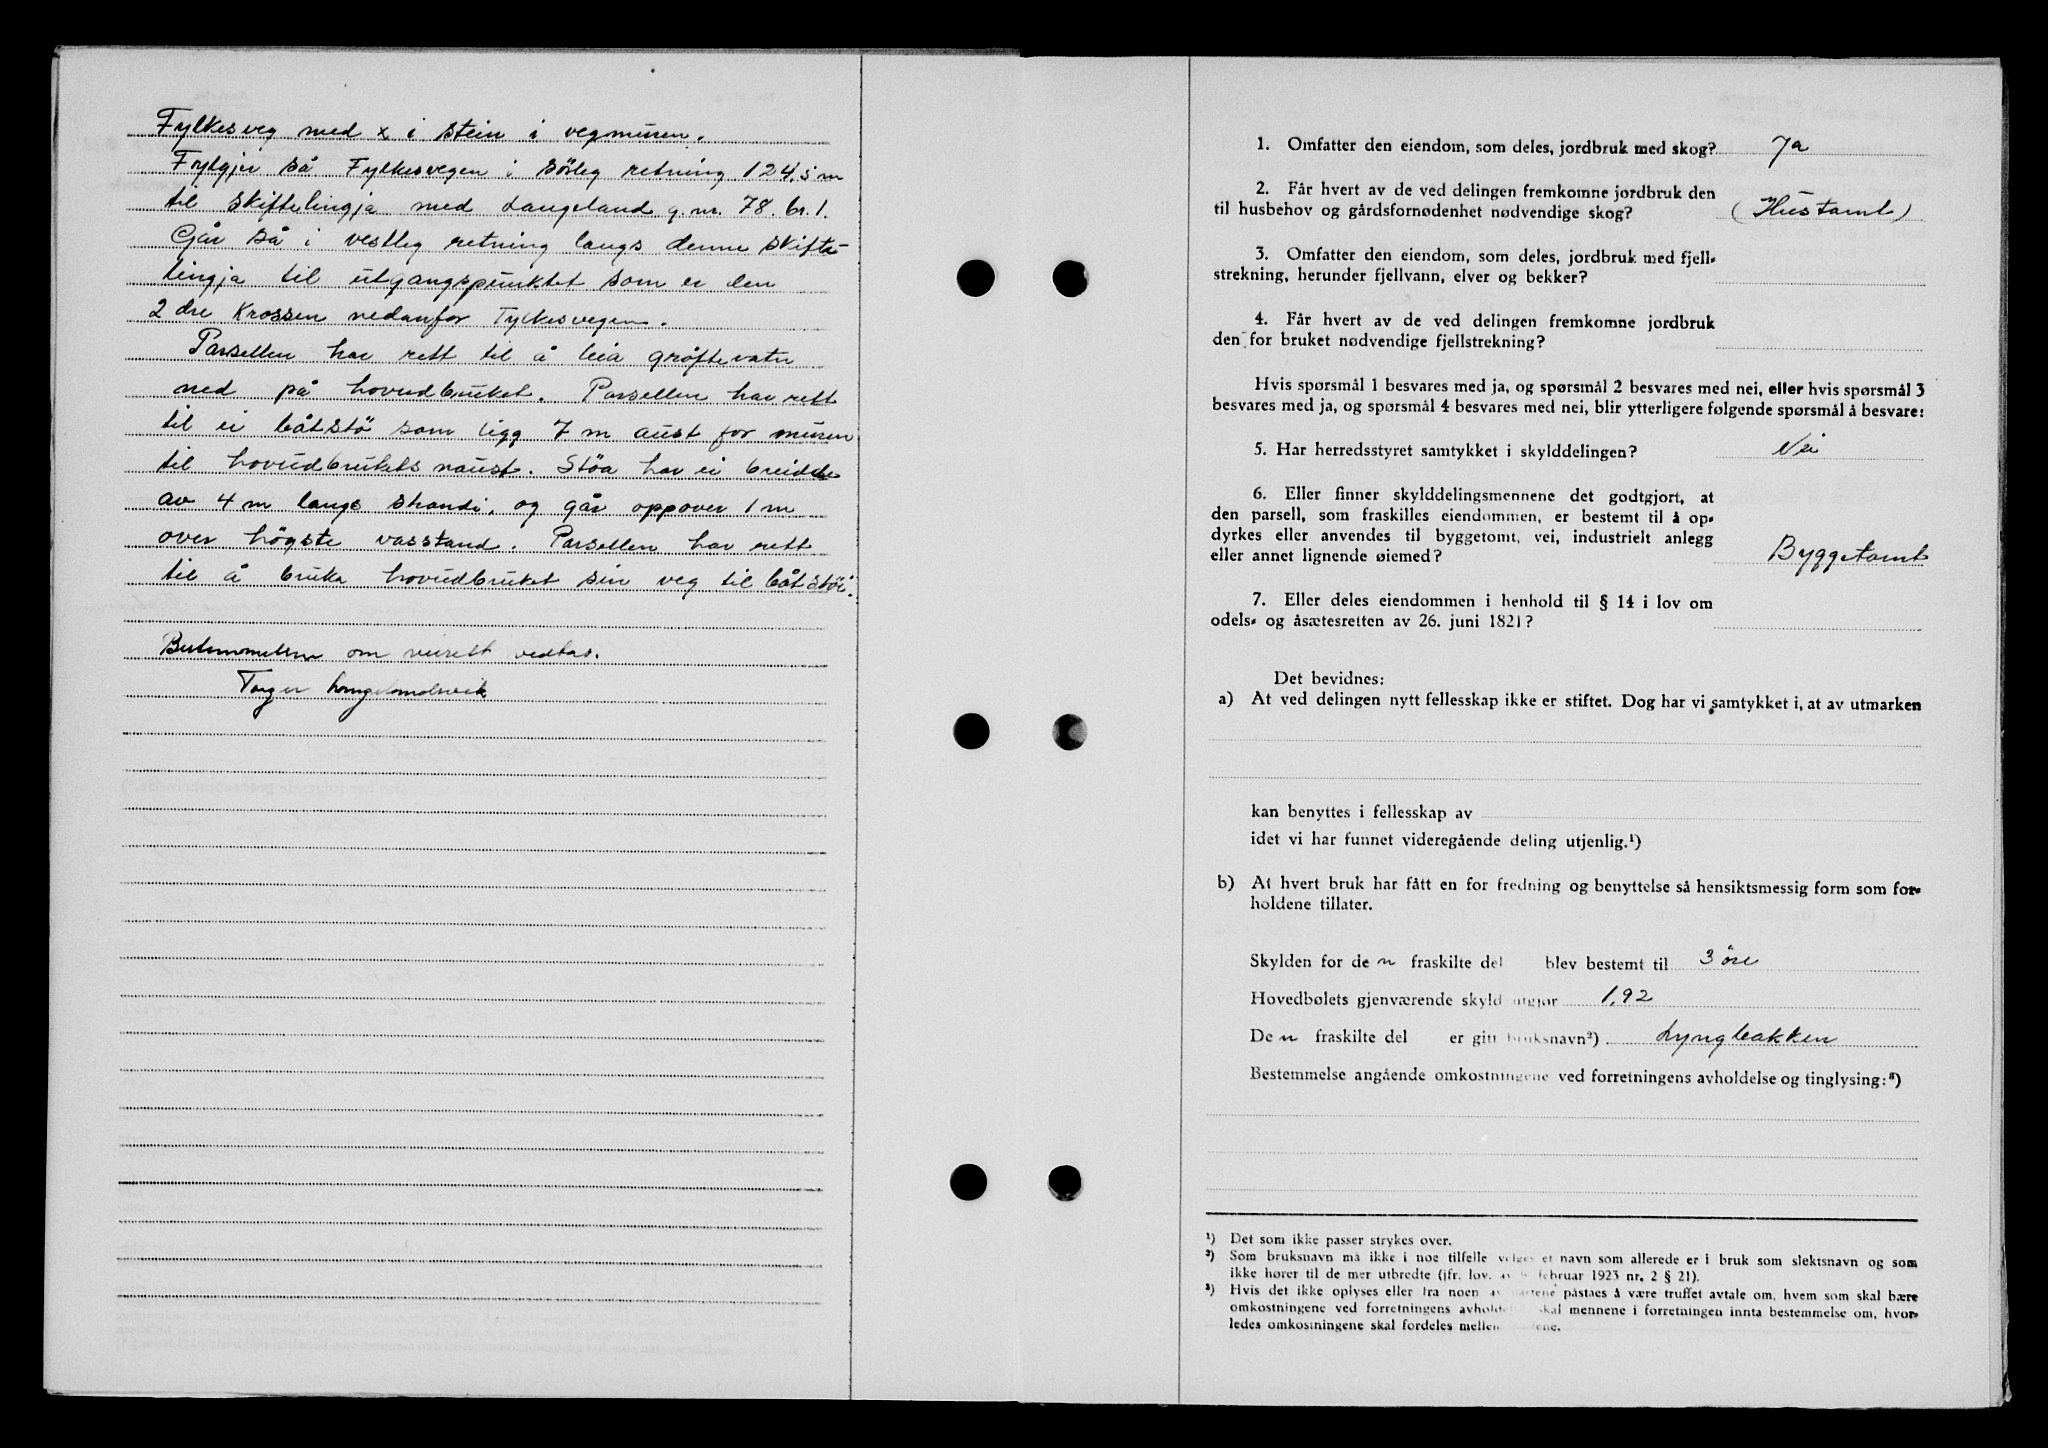 Fylkesveg med x i stein i vegmuren.
Fylgjer så Fylkesvegen i sörleg retning 124,5 m
til skiftelingja med Langeland g.nr. 78. br. 1.
Går så i vestleg retning langs denne skifte-
lingja til utgangspunktet som er den
2 dre Krossen nedanfor Fylkesvegen.
Parsellen har rett til å leia grøftevatn
ned på hovudbruket. Parsellen har rett
til ei båtstö som ligg 7 m aust for muren
til hovudbrukets naust. Stöa har ei breidde
av 4 m langs strandi, og går oppover 1 m
over högste vasstand. Parsellen har rett
til å bruka hovudbruket sin veg til båtstöi.
Bestemmelsen om veirett vedtas.
Torger Langelandsvik
1. Omfatter den eiendom, som deles, jordbruk med skog? Ja
2. Får hvert av de ved delingen fremkomne jordbruk den
til husbehov og gårdsfornødenhet nødvendige skog? (Hustomt)
3. Omfatter den eiendom, som deles, jordbruk med fjell-
strekning, herunder fjellvann, elver og bekker?
4. Får hvert av de ved delingen fremkomne jordbruk
den for bruket nødvendige fjellstrekning?
Hvis spørsmål 1 besvares med ja, og spørsmål 2 besvares med nei, eller hvis spørsmål 3
besvares med ja, og spørsmål 4 besvares med nei, blir ytterligere følgende spørsmål å besvare:
5. Har herredsstyret samtykket i skylddelingen? Nei
6. Eller finner skylddelingsmennene det godtgjort, at
den parsell, som fraskilles eiendommen, er bestemt til å op-
dyrkes eller anvendes til byggetomt, vei, industrielt anlegg
eller annet lignende øiemed? Byggetomt
7. Eller deles eiendommen i henhold til § 14 i lov om
odels- og åsætesretten av 26. juni 1821?
Det bevidnes:
a) At ved delingen nytt fellesskap ikke er stiftet. Dog har vi samtykket i, at av utmarken
kan benyttes i fellesskap av
idet vi har funnet videregående deling utjenlig.¹)
b) At hvert bruk har fått en for fredning og benyttelse så hensiktsmessig form som for-
holdene tillater.
Skylden for de n fraskilte del blev bestemt til 3 öre
Hovedbølets gjenværende skyld utgjør 1,92
De n fraskilte del er gitt bruksnavn²) Lyngbakken
Bestemmelse angående omkostningene ved forretningens avholdelse og tinglysing:³)
¹) Det som ikke passer strykes over.
²) Som bruksnavn må ikke i noe tilfelle velges et navn som allerede er i bruk som slektsnavn og som
ikke hører til de mer utbredte (jfr. lov. av februar 1923 nr. 2 § 21).
³) Hvis det ikke oplyses eller fra noen av partene påstaes å være truffet avtale om, hvem som skal bære
omkostningene ved forretningens avholdelse skal mennene i forretningen innta bestemmelse om, hvor-
ledes omkostningene skal fordeles mellem partene.